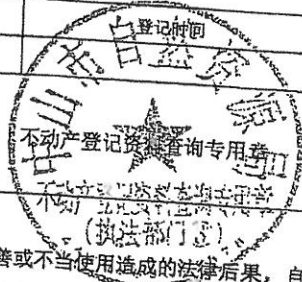 登记时间
中山市自然资源局
不动产登记资料查询专用章
不动产登记资料查询专用章
(执法部门查)
善或不当使用造成的法律后果，自